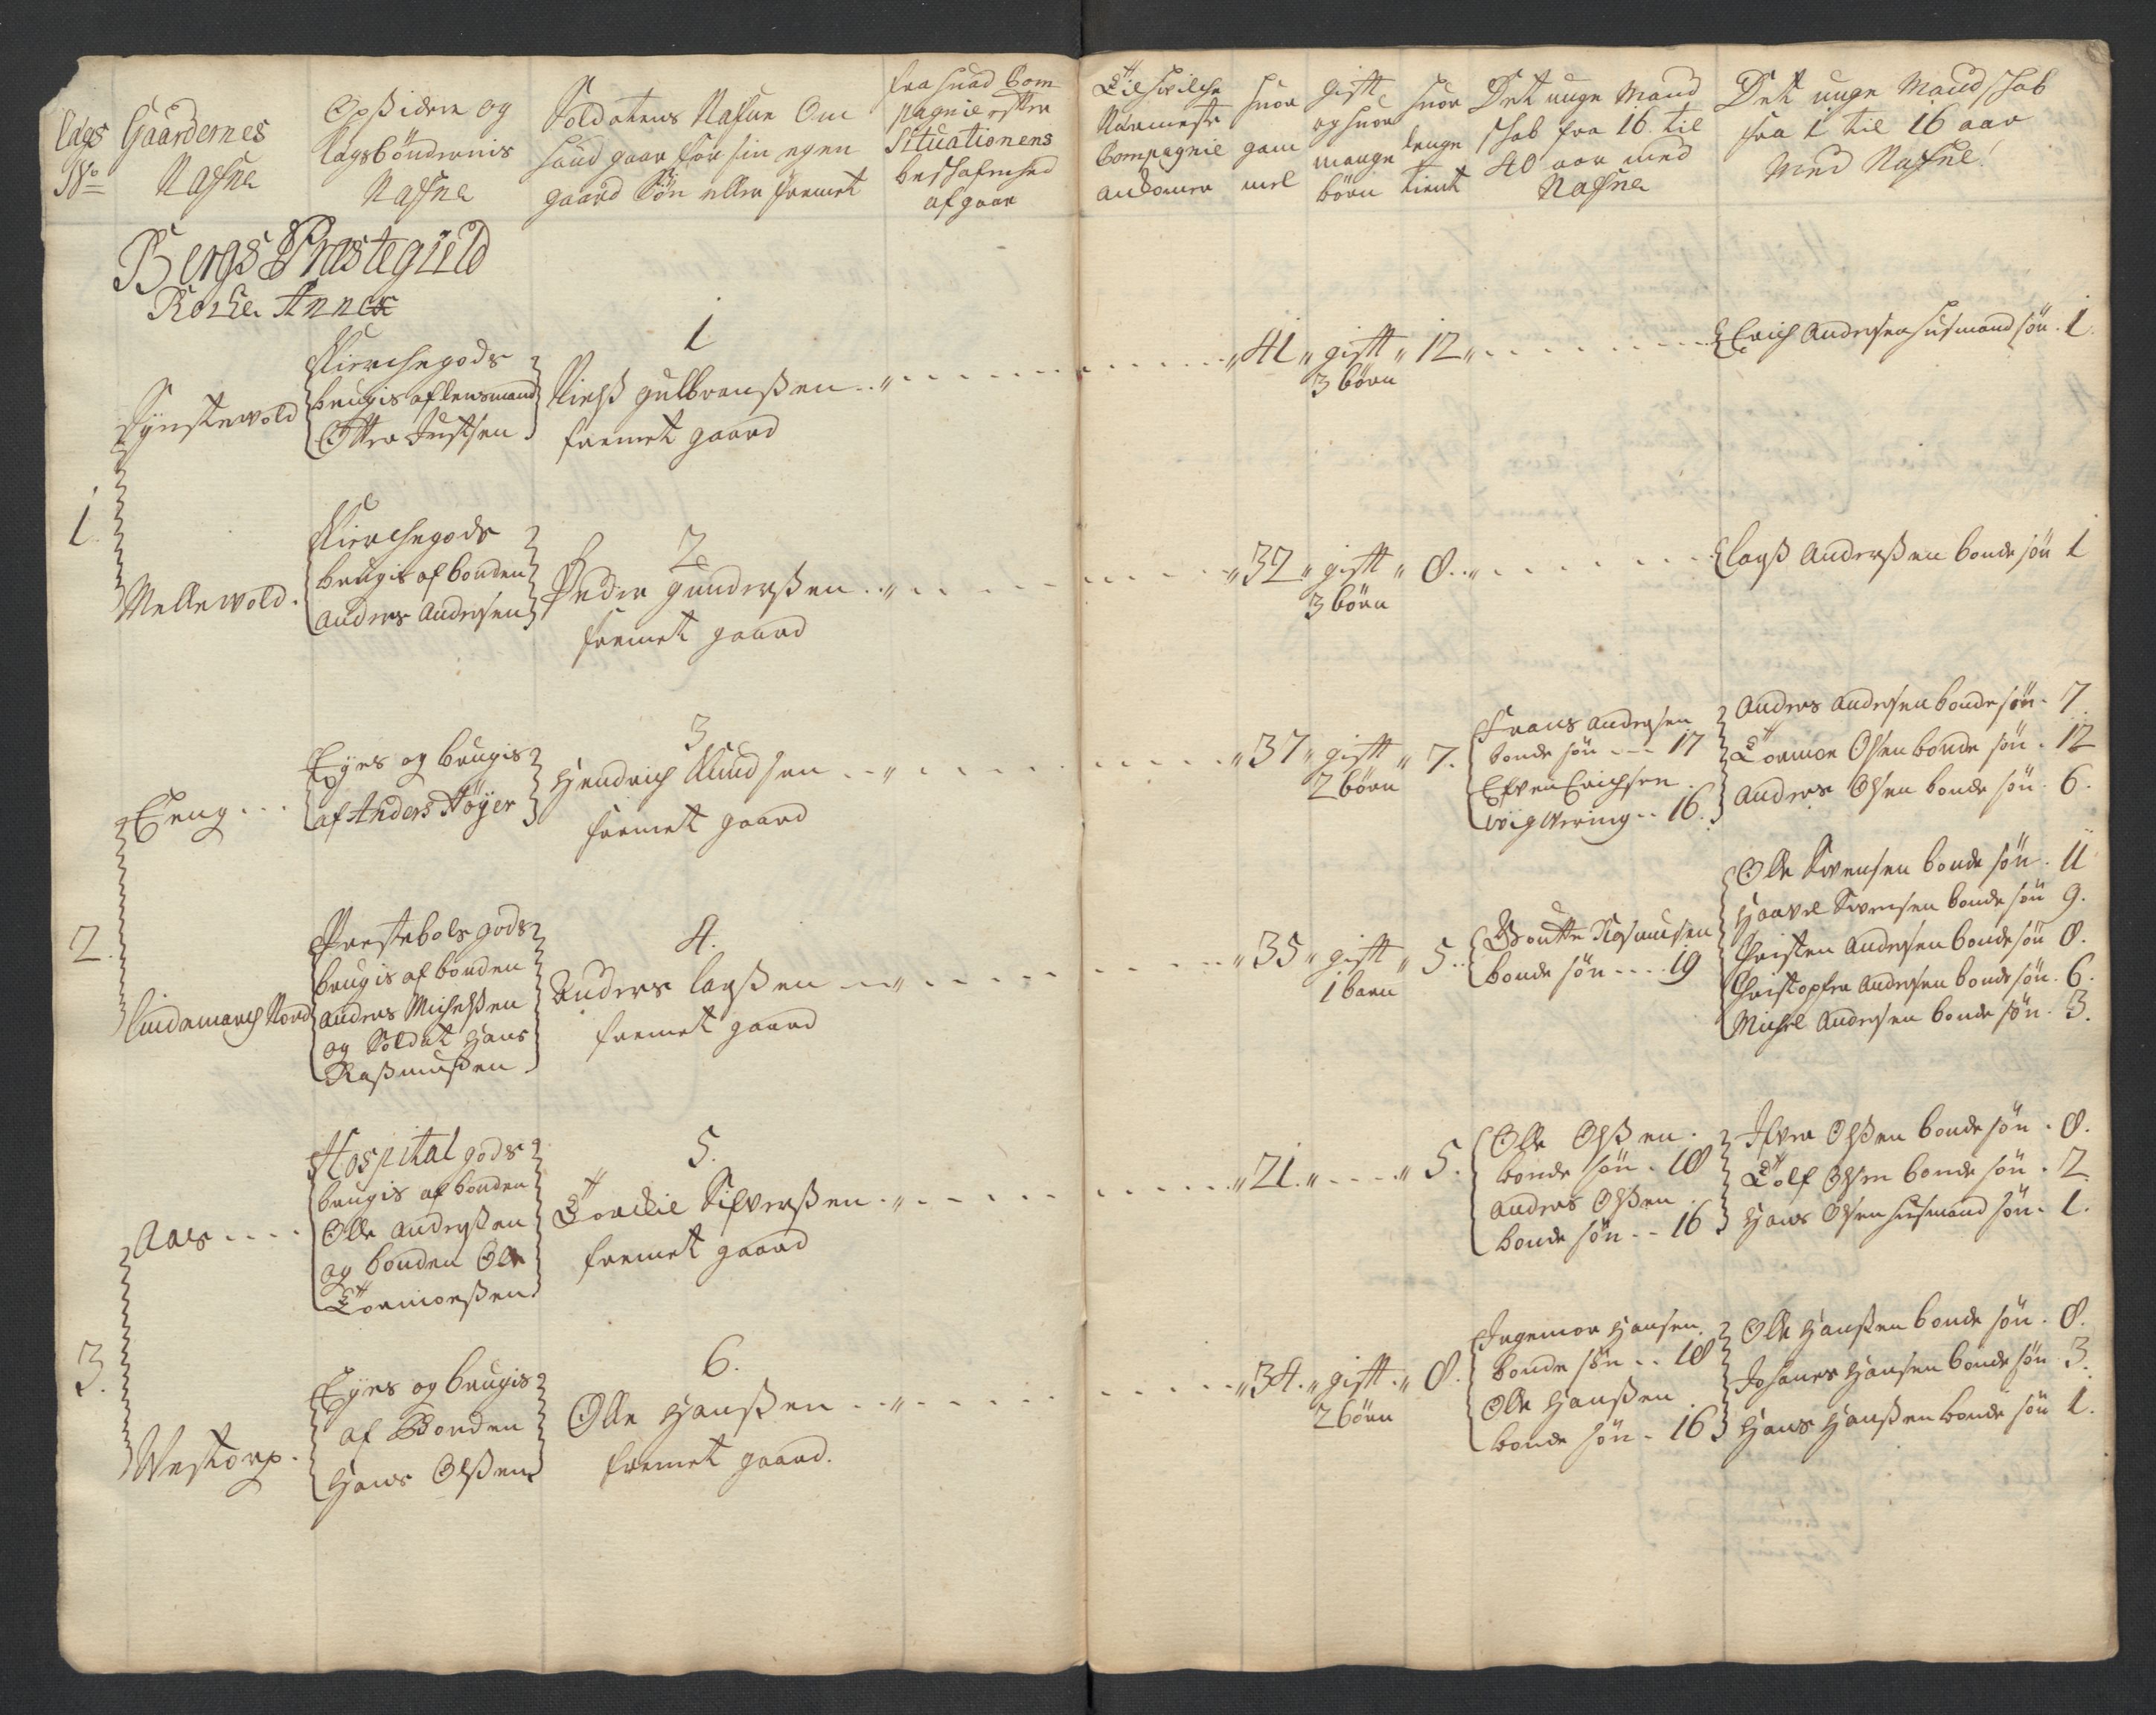 Lægs No
Gaardernes Nafne
Opsidere og lægsbøndernis Nafne
Soldatens Nafne Om hand gaar for sin egen gaard Søn eller fremet
fra huad Compagnie efter Situationens beskafenhed afgaar
Til hvilche Nærmeste Compagnie ankomer
huor gamel
gift og huor mange børn
huor lenge tient
Det unge Mandskab fra 16 til 40 aar med Nafne
Det unge Mandskab fra 1 til 16 aar Med Nafne
Bergs Præstegield
Rocke Annex
1
Synstewold
Kierchegods
brugis af lensmand
Otter Justsen
1
Niels gulbransen
fremet gaard
41 gift 12
3 børn
Erich Andersen husmand søn. 1.
Mellewold.
Kierchegods
brugis af bonden
Anders Andersen
2
Peder gundersen
fremet gaard
32 gift 8
3 børn
Lars Andersen bonde søn 1
2.
Eeng
Eyes og brugis
af Anders Høyer
3
Hendrich Knudsen
fremet gaard
37 gift 7.
2 børn
Frans Andersen
bonde søn 17
Efven Erichsen
16.
Anders Andersen bonde søn. 7.
Tormor Olsen bonde søn. 12
Anders Olsen bonde søn. 6.
Lindemarch Nord
Prestebols gods
brugis af bonden
Anders Michelsen
og Soldat Hans
Rasmussen
4.
Anders larsen
fremet gaard
35 gift 5
1 barn
Goutte Rasmusen
bonde søn 19
Olle Svensen bonde søn. 11
Haavel Svensen bonde søn 9.
Christen Andersen bonde søn 8.
Christopher Andersen bonde søn. 6.
Michel Andersen bonde søn. 3.
3.
Aas
Hospital gods
brugis af bonden
Olle Andersen
og bonden Olle
Tormorsen
5.
Torckil Sifversen
fremet gaard
21. 5.
Olle Olsen
bonde søn. 18
Anders Olsen
bonde søn 16
Ifver Olsen bonde søn. 8.
Tolf Olsen bonde søn. 2.
Hans Olsen husmand søn. 1.
Westorp.
Eyes og brugis
af Bonden
Hans Olsen
6.
Olle Hansen
fremet gaard.
34. gift 8.
2 børn
Ingemor Hansen
bonde søn 18
Olle Hansen
bonde søn. 16
Olle Hansen bonde søn. 8.
Johanes Hansen bonde søn 3.
Hans Hansen bonde søn 1.